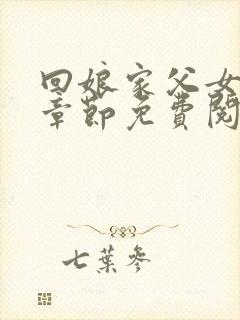 回娘家父女
章節免費閱
七葉參